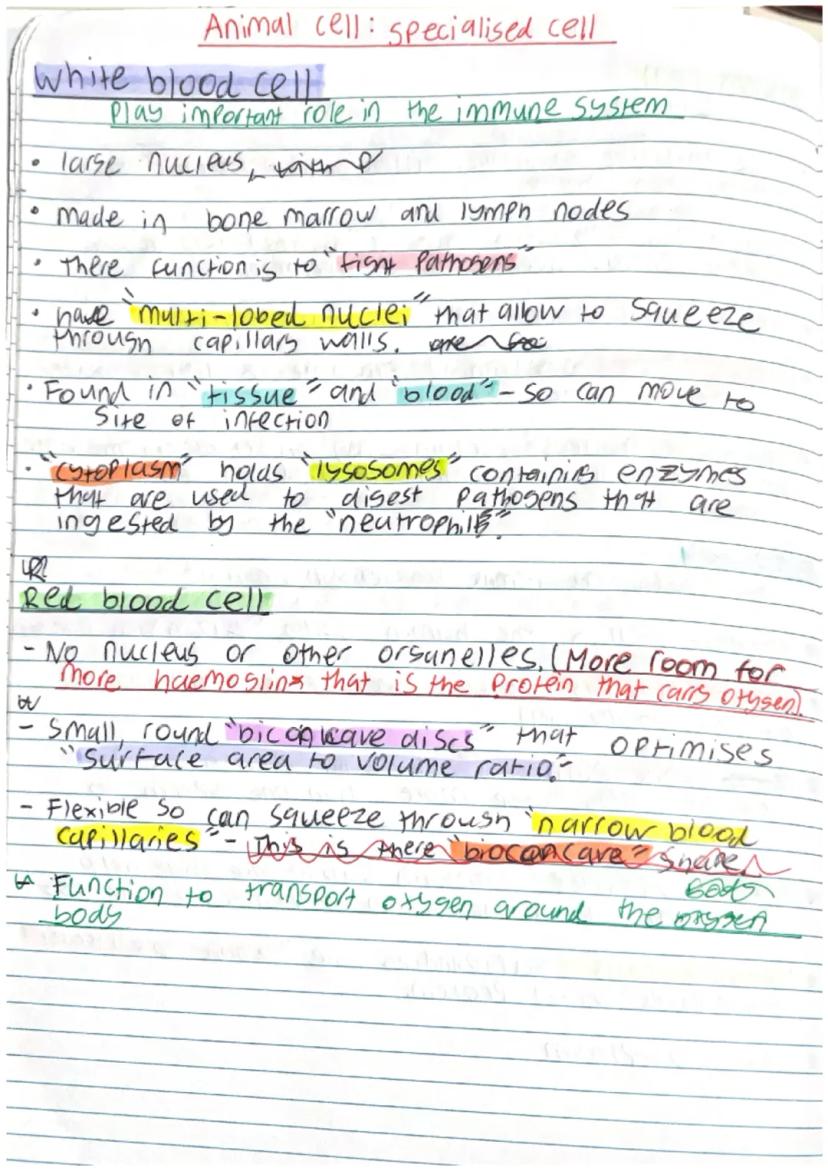 Animal cell: specialised cell
White blood cell
Play important role in the immune system
• large nucleus,
• made in bone marrow and lymph nodes
• there function is to "fight Pathogens"
• have "multi-lobed nuclei" that allow to squeeze
through capillary walls.
• Found in "tissue" and "blood" - so can move to
site of infection
• "cytoplasm" holds "lysosomes" containing enzymes
that are used to digest pathogens that are
ingested by the "neutrophils".
Red blood cell
- No nucleus or other organelles. (More room for
more haemoglin that is the protein that carry oxygen).
- Small, round "biconcave discs" that optimises
"surface area to volume ratio."
- Flexible so can squeeze through "narrow blood
capillaries" - This is there "bioconcave" shape
Function to transport oxygen around the oxygen
body